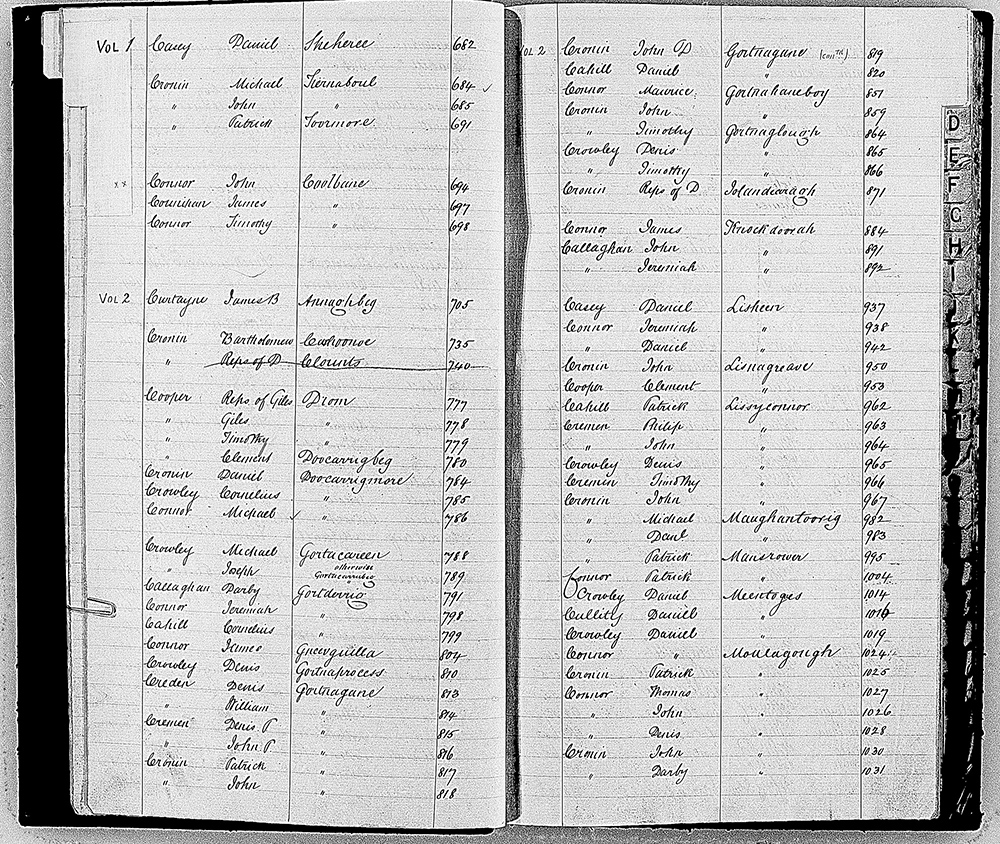 VOL 1 Casey Daniel Sheheree 682
Cronin Michael Tiernaboul 684 ✓
" John " 685
" Patrick Toormore 691
x x Connor John Coolbane 694
Counihan James " 697
Connor Timothy " 698
VOL 2 Curtayne James B Annaghbeg 705
Cronin Bartholomew 735
" Reps of D Clounts 740
Cooper Reps of Giles Drom 777
" Giles " 778
" Timothy " 779
" Clement Doocarrigbeg 780
Cronin Daniel Doocarrigmore 784
Crowley Cornelius " 785
Connor Michael ✓ " 786
Crowley Michael Gortacareen 788
otherwise
" Joseph 789
Callaghan Darby Gortderrig 791
Connor Jeremiah " 798
Cahill Cornelius " 799
Connor James Gneevguilla 804
Crowley Denis Gortnaprocess 810
Creden Denis Gortnagane 813
" William " 814
Cremen Denis T " 815
" John T " 816
Cronin Patrick " 817
" John " 818
VOL 2 Cronin John D Gortnagane (contd) 819
Cahill Daniel " 820
Connor Maurice Gortnahaneboy 851
Cronin John " 859
" Timothy Gortnaglough 864
Crowley Denis " 865
" Timothy " 866
Cronin Reps of D 871
Connor James Knockdoorah 884
Callaghan John " 891
" Jeremiah " 892
Casey Daniel Lisheen 937
Connor Jeremiah " 938
" Daniel " 942
Cronin John Lisnagreave 950
Cooper Clement " 953
Cahill Patrick Lissyconnor 962
Cremen Philip " 963
" John " 964
Crowley Denis " 965
Cremin Timothy " 966
Cronin John " 967
" Michael Maughantoorig 982
" Danl " 983
" Patrick Mansrower 995
Connor Patrick " 1004
Crowley Daniel Meentoges 1014
Cullity Daniell " 1016
Crowley Daniel " 1019
Connor " Moulagough 1024
Cronin Patrick " 1025
Connor Thomas " 1027
" John " 1026
" Denis " 1028
Cronin John " 1030
" Darby " 1031
D
E
F
G
H
I